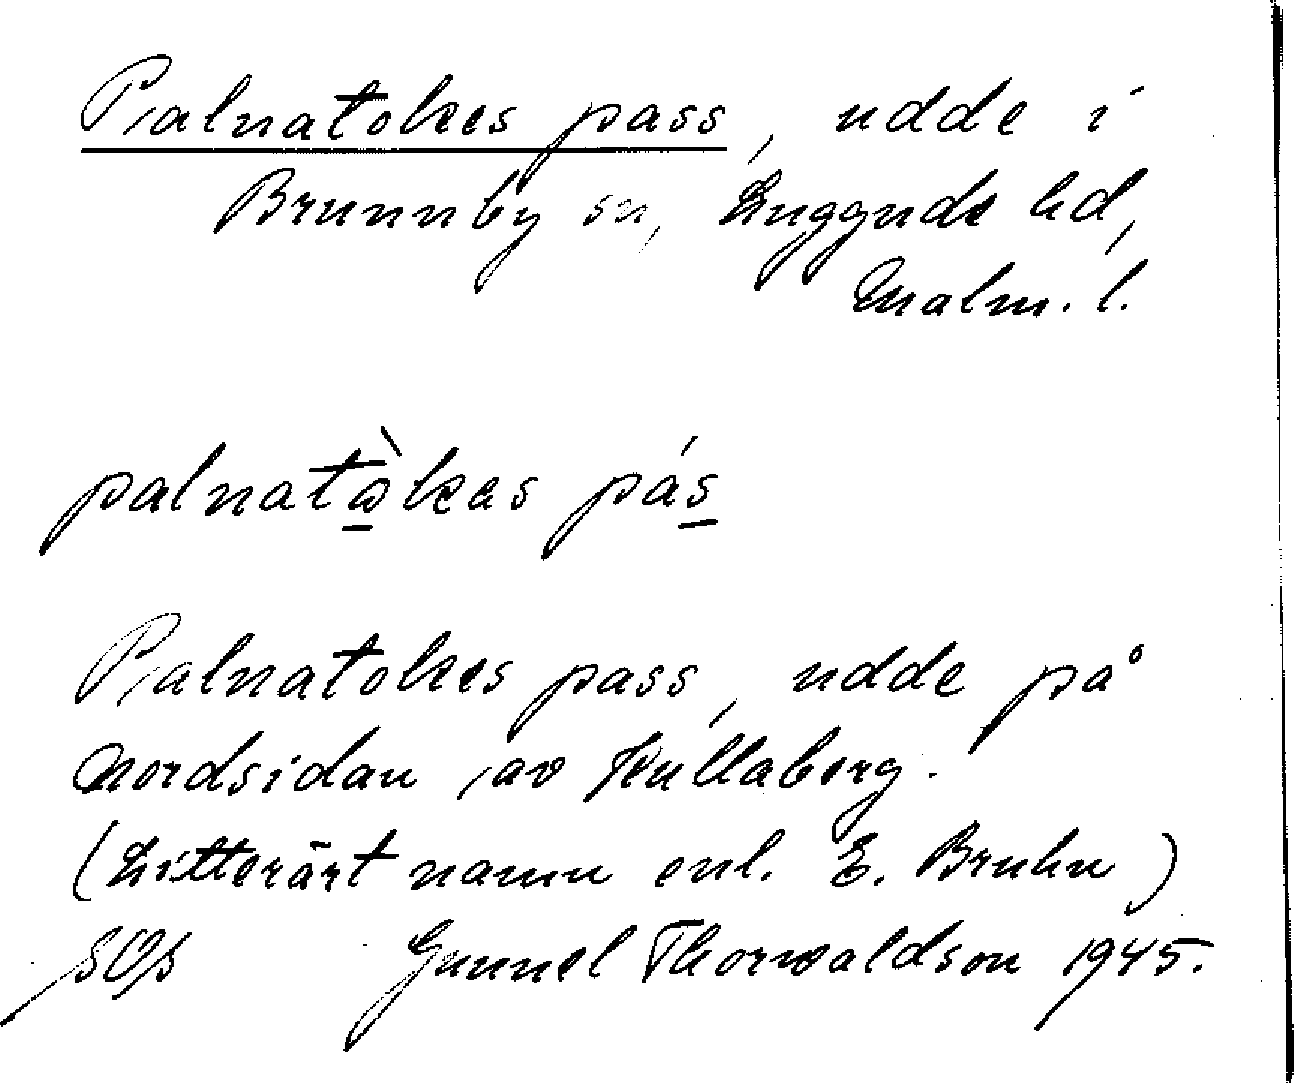 Palnatokes pass, udde i
Brunnby sn, Luggude hd,
Malm. l.
palnatòkas pás
Palnatokes pass, udde på
nordsidan av Kullaberg.
(Litterärt namn enl. E. Bruhn)
SOs Gunnel Thorwaldson 1945.